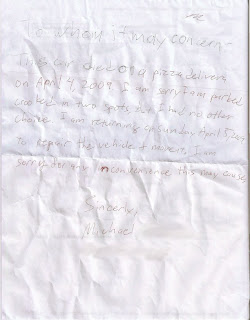 To whom it may concern-
This car died on a pizza delivery
on April 4, 2009. I am sorry I am parked
crooked in two spots but I had no other
choice. I am returning on Sunday April 5, 2009
to repair the vehicle & move it. I am
sorry for any inconvenience this may cause
Sincerely,
Michael